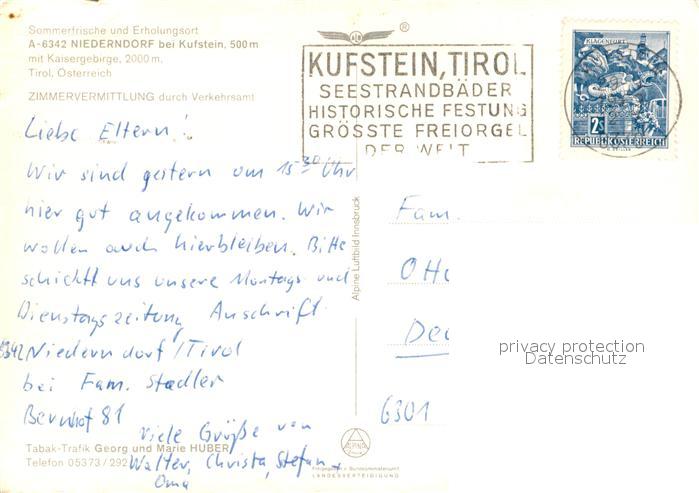 Sommerfrische und Erholungsort
A-6342 NIEDERNDORF bei Kufstein, 500 m
mit Kaisergebirge, 2000 m.
Tirol, Österreich
ZIMMERVERMITTLUNG durch Verkehrsamt
Liebe Eltern!
Wir sind gestern um 15³⁰ Uhr
hier gut angekommen. Wir
wollen auch hierbleiben. Bitte
schickt uns unsere Montags und
Dienstagszeitung Anschrift
6342 Niederndorf/Tirol
bei Fam. Stadler
81
Viele Grüße von
Walter, Christa, Stefan +
Oma
Tabak-Trafik Georg und Marie HUBER
Telefon 05373/292
Alpine Luftbild Innsbruck
®
KUFSTEIN, TIROL
SEESTRANDBÄDER
HISTORISCHE FESTUNG
GRÖSSTE FREIORGEL
DER WELT
KLAGENFURT
2S
REPUBLIK ÖSTERREICH
Fam.
Ott
De
6301
privacy protection
Datenschutz
ALPINE
LANDESVERTEIDIGUNG